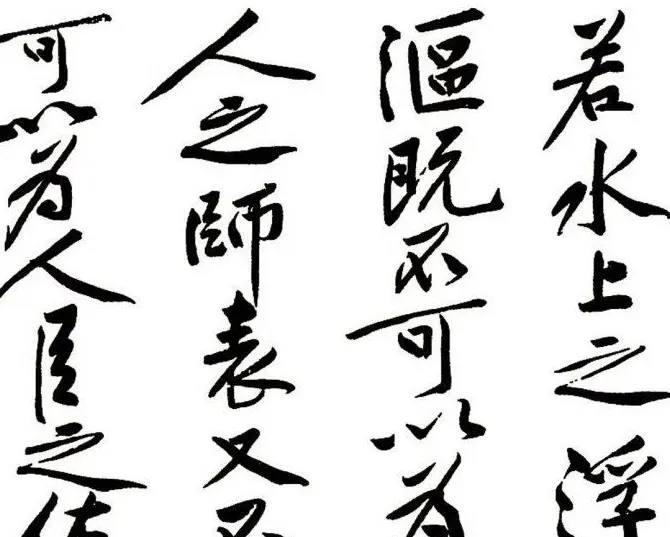 若水上之浮
漚既不可以为
人之師表又不
可以为人臣之佐